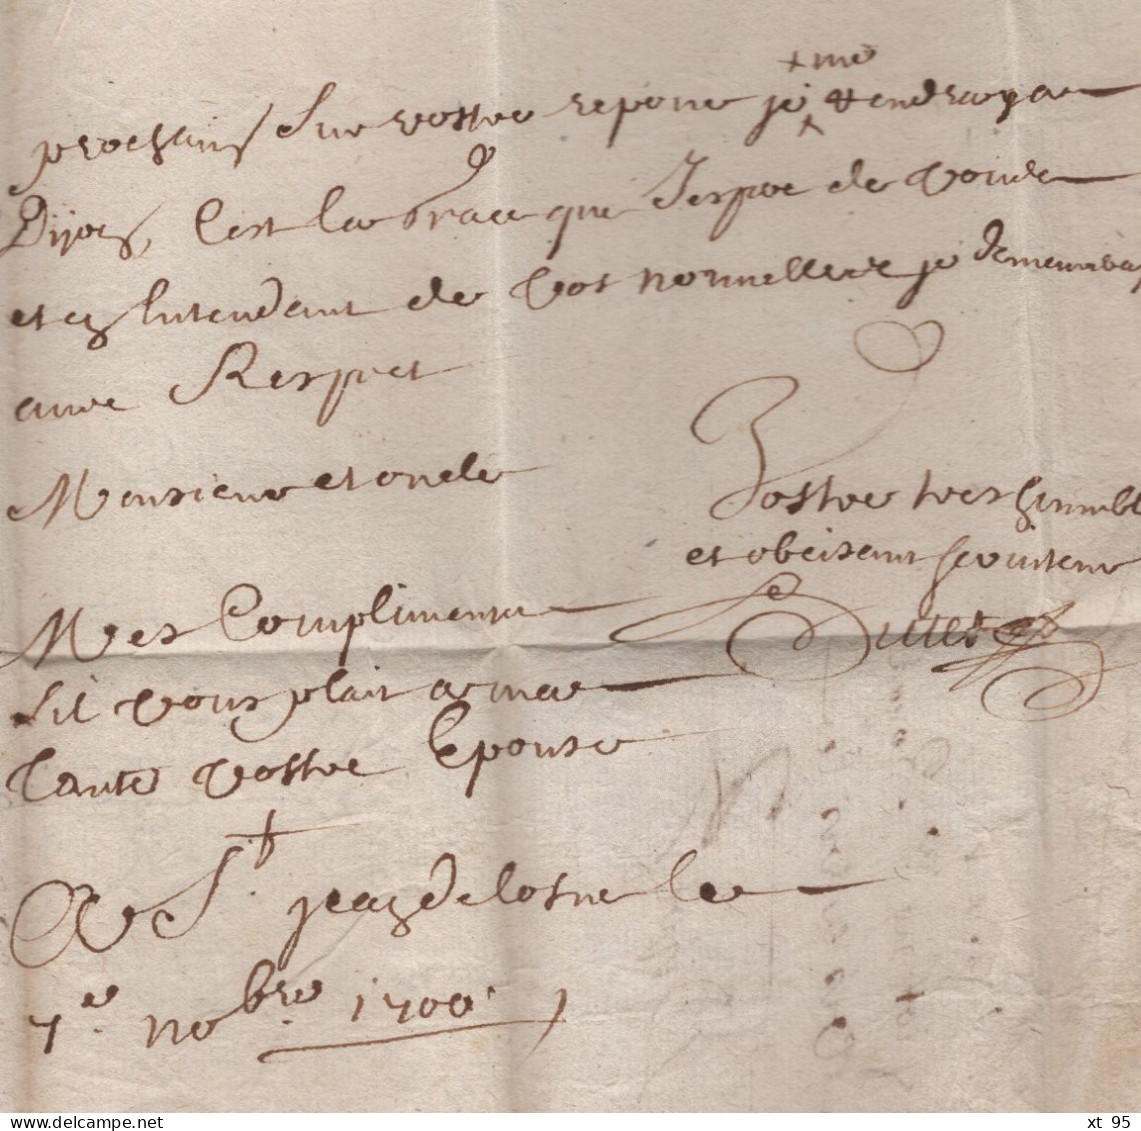 + me
prochain Sur vostre reponce je ^ rendray a
Dijon, C'est la Grace que J'espere de Vous
et en Lattendant de Vos nouvelles je demeureray
avec Respect
Monsieur et oncle
Vostre tres humbl
et obeisant serviteur
Mes Compliments
sil vous plait a ma
tante vostre Epouse
A St. jean de losne le
7e. nobre. 1700
www.delcampe.net
xt 95